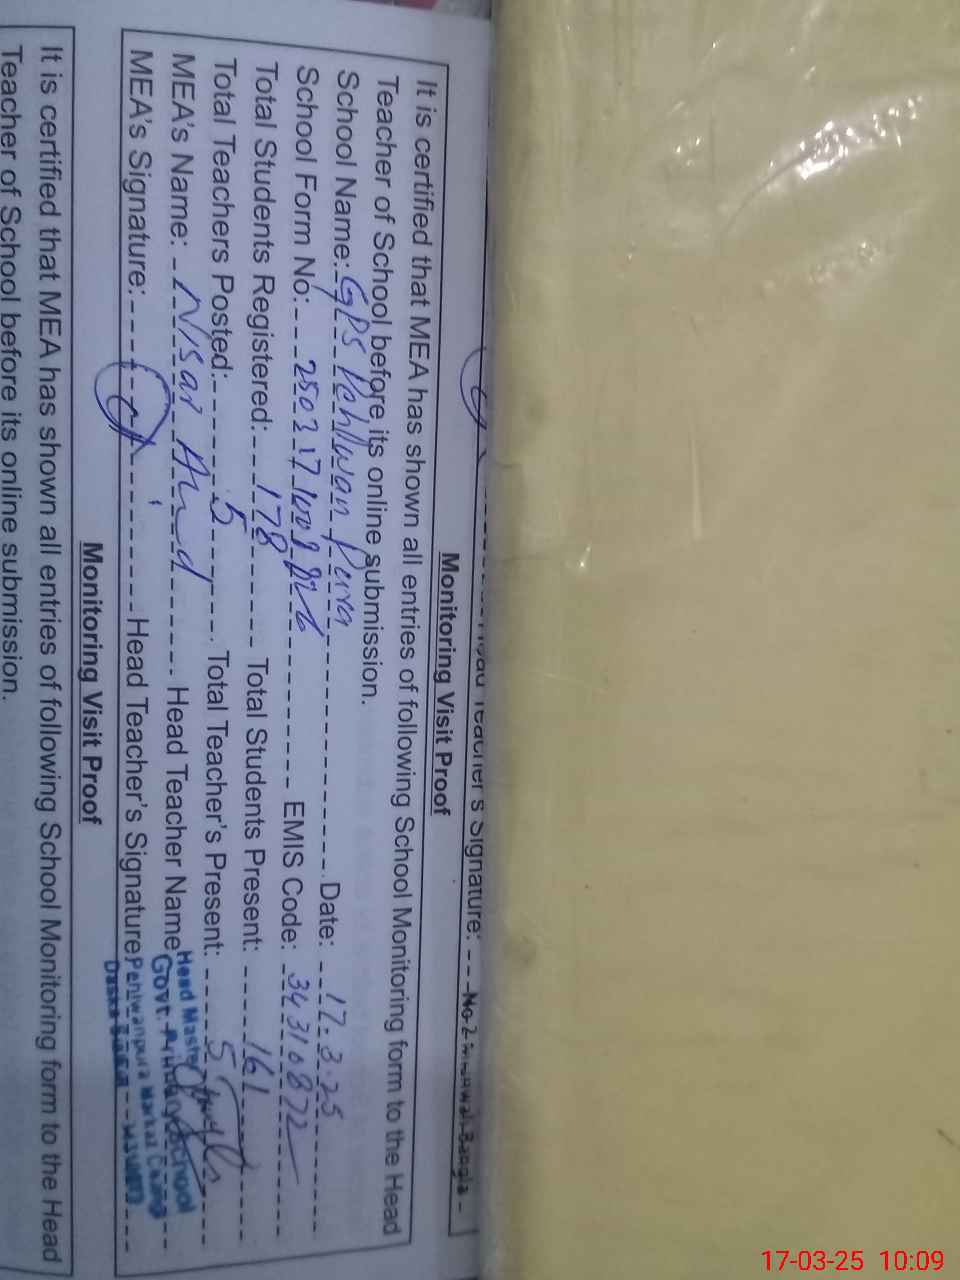 Teacher's Signature:
Monitoring Visit Proof
It is certified that MEA has shown all entries of following School Monitoring form to the Head
Teacher of School before its online submission.
School Name: GPS Pehlwan Pura Date: 17.3.25
School Form No: EMIS Code: 34310872
Total Students Registered: 178 Total Students Present: 161
Total Teachers Posted: 5 Total Teacher's Present: 5
MEA's Name: Nisar Head Teacher Name
MEA's Signature: Head Teacher's Signature
Head Master
Govt. Primary School
Pehlwanpura
Monitoring Visit Proof
It is certified that MEA has shown all entries of following School Monitoring form to the Head
Teacher of School before its online submission.
17-03-25 10:09